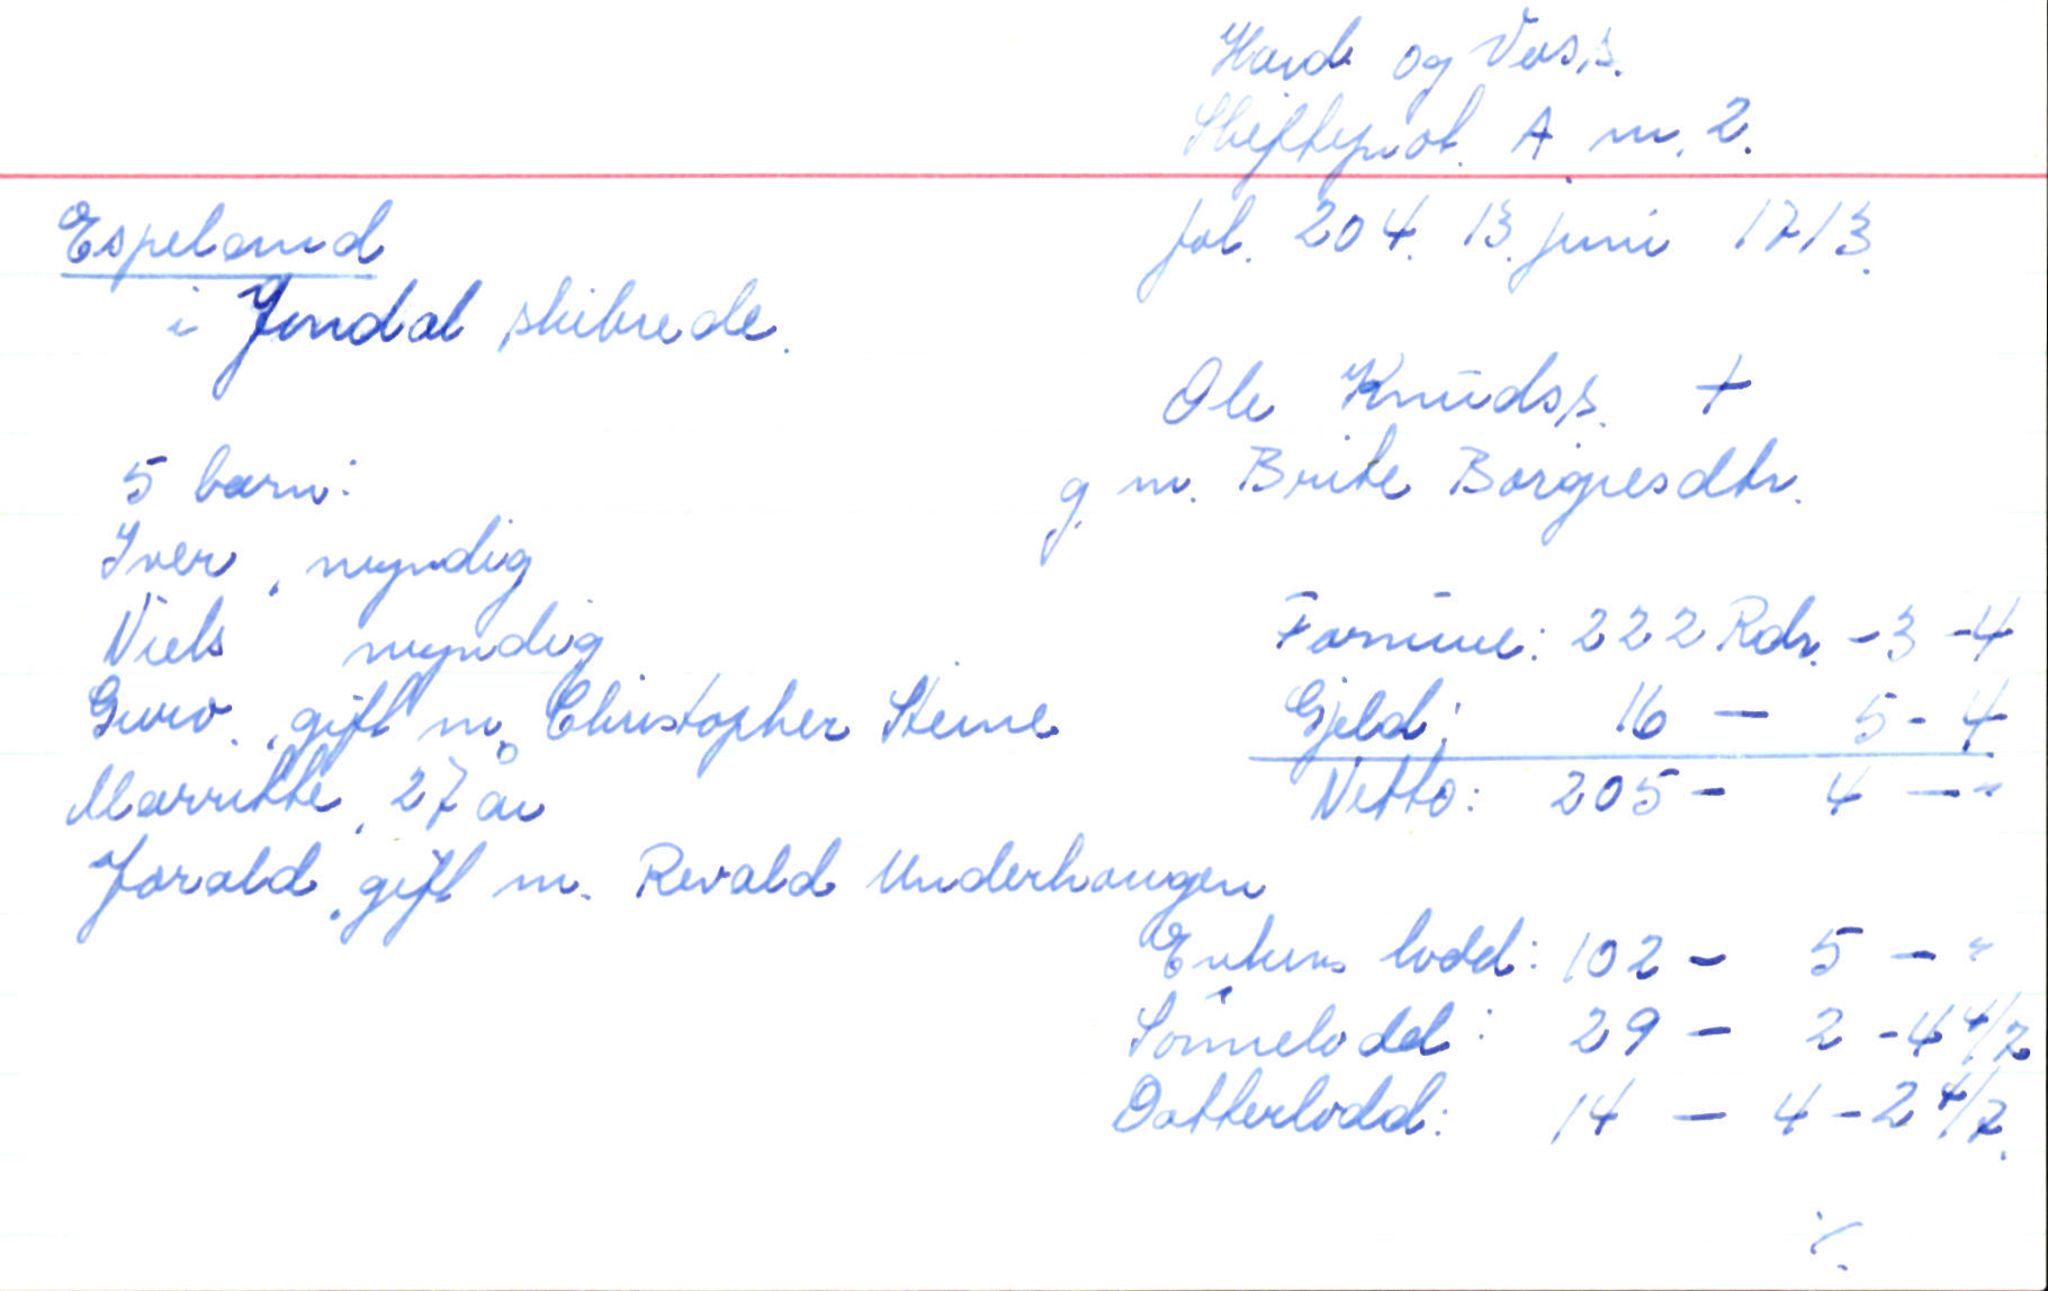 Hard. og Voss.
Skifteprot. A nr. 2.
fol. 204. 13. juni 1713.
Espeland
i Jondal skibrede.
Ole Knudss. +
g. m. Brite Borgiesdtr.
5 barn:
Iver, myndig
Niels myndig
Guro, gift m. Christopher Steine
Marritte, 27 år
Jorald, gift m. Revald Underhaugen
Formue: 222 Rdr. - 3 - 4
Gjeld: 16 - 5 - 4
Netto: 205 - 4 - "
Enkens lodd: 102 - 5 - "
Sönnelodd: 29 - 2 - 4 4/7
Datterlodd: 14 - 4 - 2 4/7.
./.